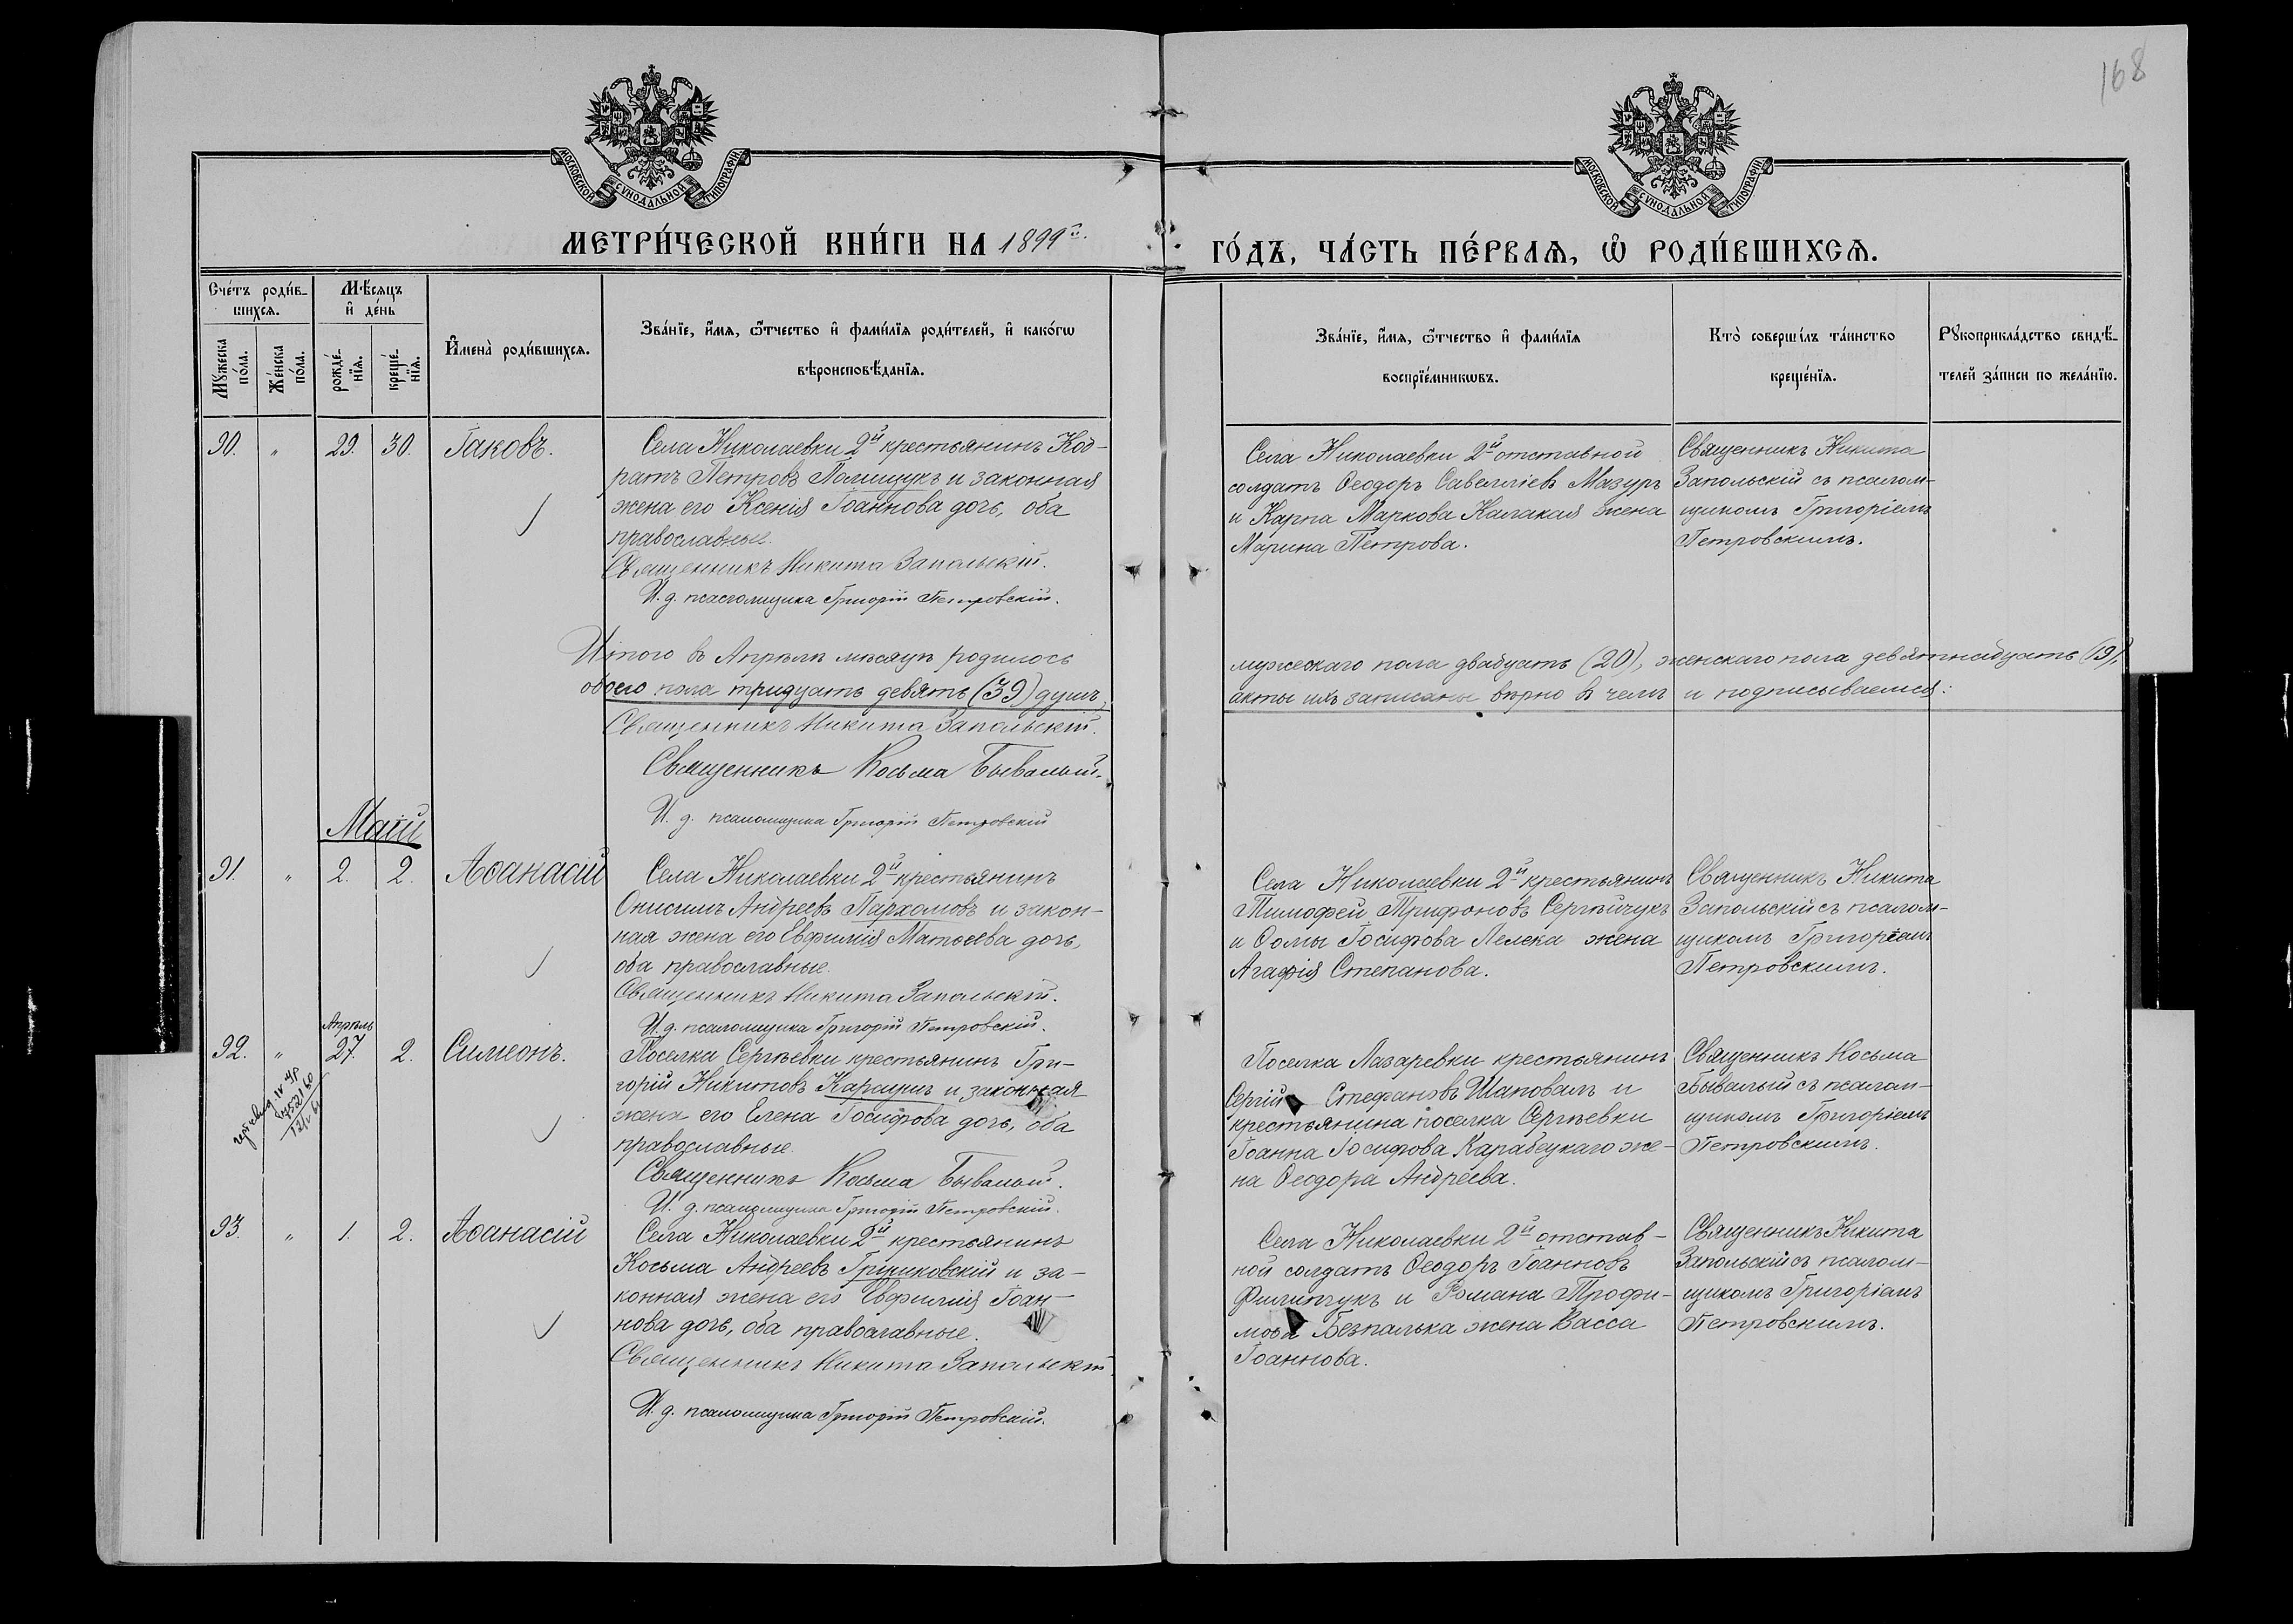 168
МОСКОВСКОЙ СУНОДАЛЬНОЙ ТИПОГРАФІИ
МОСКОВСКОЙ СУНОДАЛЬНОЙ ТИПОГРАФІИ
МЕТРИ́ЧЕСКОЙ КНИ́ГИ НА 1899й.
ГО́ДЪ, ЧА́СТЬ ПЕ́РВАѦ, Ѡ РОДИ́ВШИХСѦ.
Сче́тъ роди́в-
шихсѧ.
Мꙋжеска по́ла.
Же́нска по́ла.
Мѣ́сѧцъ
и҆ де́нь
рожде́-
нїѧ.
креще́-
нїѧ.
И҆мена̀ роди́вшихсѧ.
Зва́нїе, и҆́мѧ, ѻ҆́тчество и҆ фами́лїѧ роди́телей, и҆ како́гѡ
вѣроисповѣ́данїѧ.
Зва́нїе, и҆́мѧ, ѻ҆́тчество и҆ фами́лїѧ
воспрїе́мникѡвъ.
Кто̀ соверши́лъ та́инство
креще́нїѧ.
Рꙋкоприкла́дство свидѣ́-
телей за́писи по жела́нїю.
90. " 29. 30. Іаковъ.
Села Николаевки 2й крестьянинъ Код-
ратъ Петровъ Полищукъ и законная
жена его Ксенія Іоаннова дочь, оба
православные.
Священникъ Никита Запольскій.
И. д. псаломщика Григорій Петровскій.
Села Николаевки 2й отставной
солдатъ Ѳеодоръ Савелліевъ Мазуръ
и Карпа Маркова Калакая жена
Марина Петрова.
Священникъ Никита
Запольскій съ псалом-
щикомъ Григоріемъ
Петровскимъ.
Итого въ Апрѣлѣ мѣсяцѣ родилось
обоего пола тридцать девять (39) душъ,
мужескаго пола двадцать (20), женскаго пола девятнадцать (19),
акты ихъ записаны вѣрно въ чемъ и подписываемся:
Священникъ Никита Запольскій.
Священникъ Косьма Бывалый.
И. д. псаломщика Григорій Петровскій
Маій
91. " 2. 2. Аѳанасій
Села Николаевки 2й крестьянинъ
Онисимъ Андреевъ Пархомовъ и закон-
ная жена его Евфимія Матѳеева дочь,
оба православные.
Священникъ Никита Запольскій.
И. д. псаломщика Григорій Петровскій.
Села Николаевки 2й крестьянинъ
Тимофей Трифоновъ Сергѣйчукъ
и Ѳомы Іосифова Лелека жена
Агафія Степанова.
Священникъ Никита
Запольскій съ псалом-
щикомъ Григоріемъ
Петровскимъ.
Апрѣль
92. " 27. 2. Симеонъ.
Поселка Сергѣевки крестьянинъ Гри-
горій Никитовъ Карацупъ и законная
жена его Елена Іосифова дочь, оба
православные.
Священникъ Косьма Бывалый.
И. д. псаломщика Григорій Петровскій.
Поселка Лазаревки крестьянинъ
Сергій Стефановъ Шаповалъ и
крестьянина поселка Сергѣевки
Іоанна Іосифова Карабецкаго же-
на Ѳеодора Андреева.
Священникъ Косьма
Бывалый съ псалом-
щикомъ Григоріемъ
Петровскимъ.
93. " 1. 2. Аѳанасій
Села Николаевки 2й крестьянинъ
Косьма Андреевъ Грушковскій и за-
конная жена его Евфимія Іоан-
нова дочь, оба православные.
Священникъ Никита Запольскій
И. д. псаломщика Григорій Петровскій.
Села Николаевки 2й отстав-
ной солдатъ Ѳеодоръ Іоанновъ
Филипчукъ и Романа Трофи-
мова Безпалька жена Васса
Іоаннова.
Священникъ Никита
Запольскій съ псалом-
щикомъ Григоріемъ
Петровскимъ.